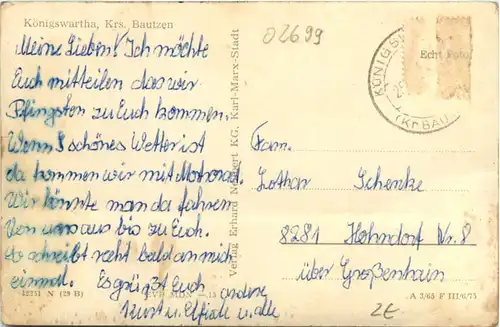 Königswartha, Krs. Bautzen
02699
Meine Lieben! Ich möchte
Euch mitteilen das wir
Pfingsten zu Euch kommen.
Wenn schönes Wetter ist
da kommen wir mit Motorrad.
Wir könnte man da fahren
Von uns aus bis zu Euch.
So schreibt recht bald an mich
einmal. Es grüßt Euch
andere
Kurt u. Elfride u. alle
12331 N (29 B)
EVP MDN
Verlag Erhard Neubert KG, Karl-Marx-Stadt
KÖNIGSW
(Kr. BAU
Echt Foto
Fam.
Lothar Schenke
8281 Hohndorf Nr. 8
über Großenhain
A 3/65 F III/6/75
2€